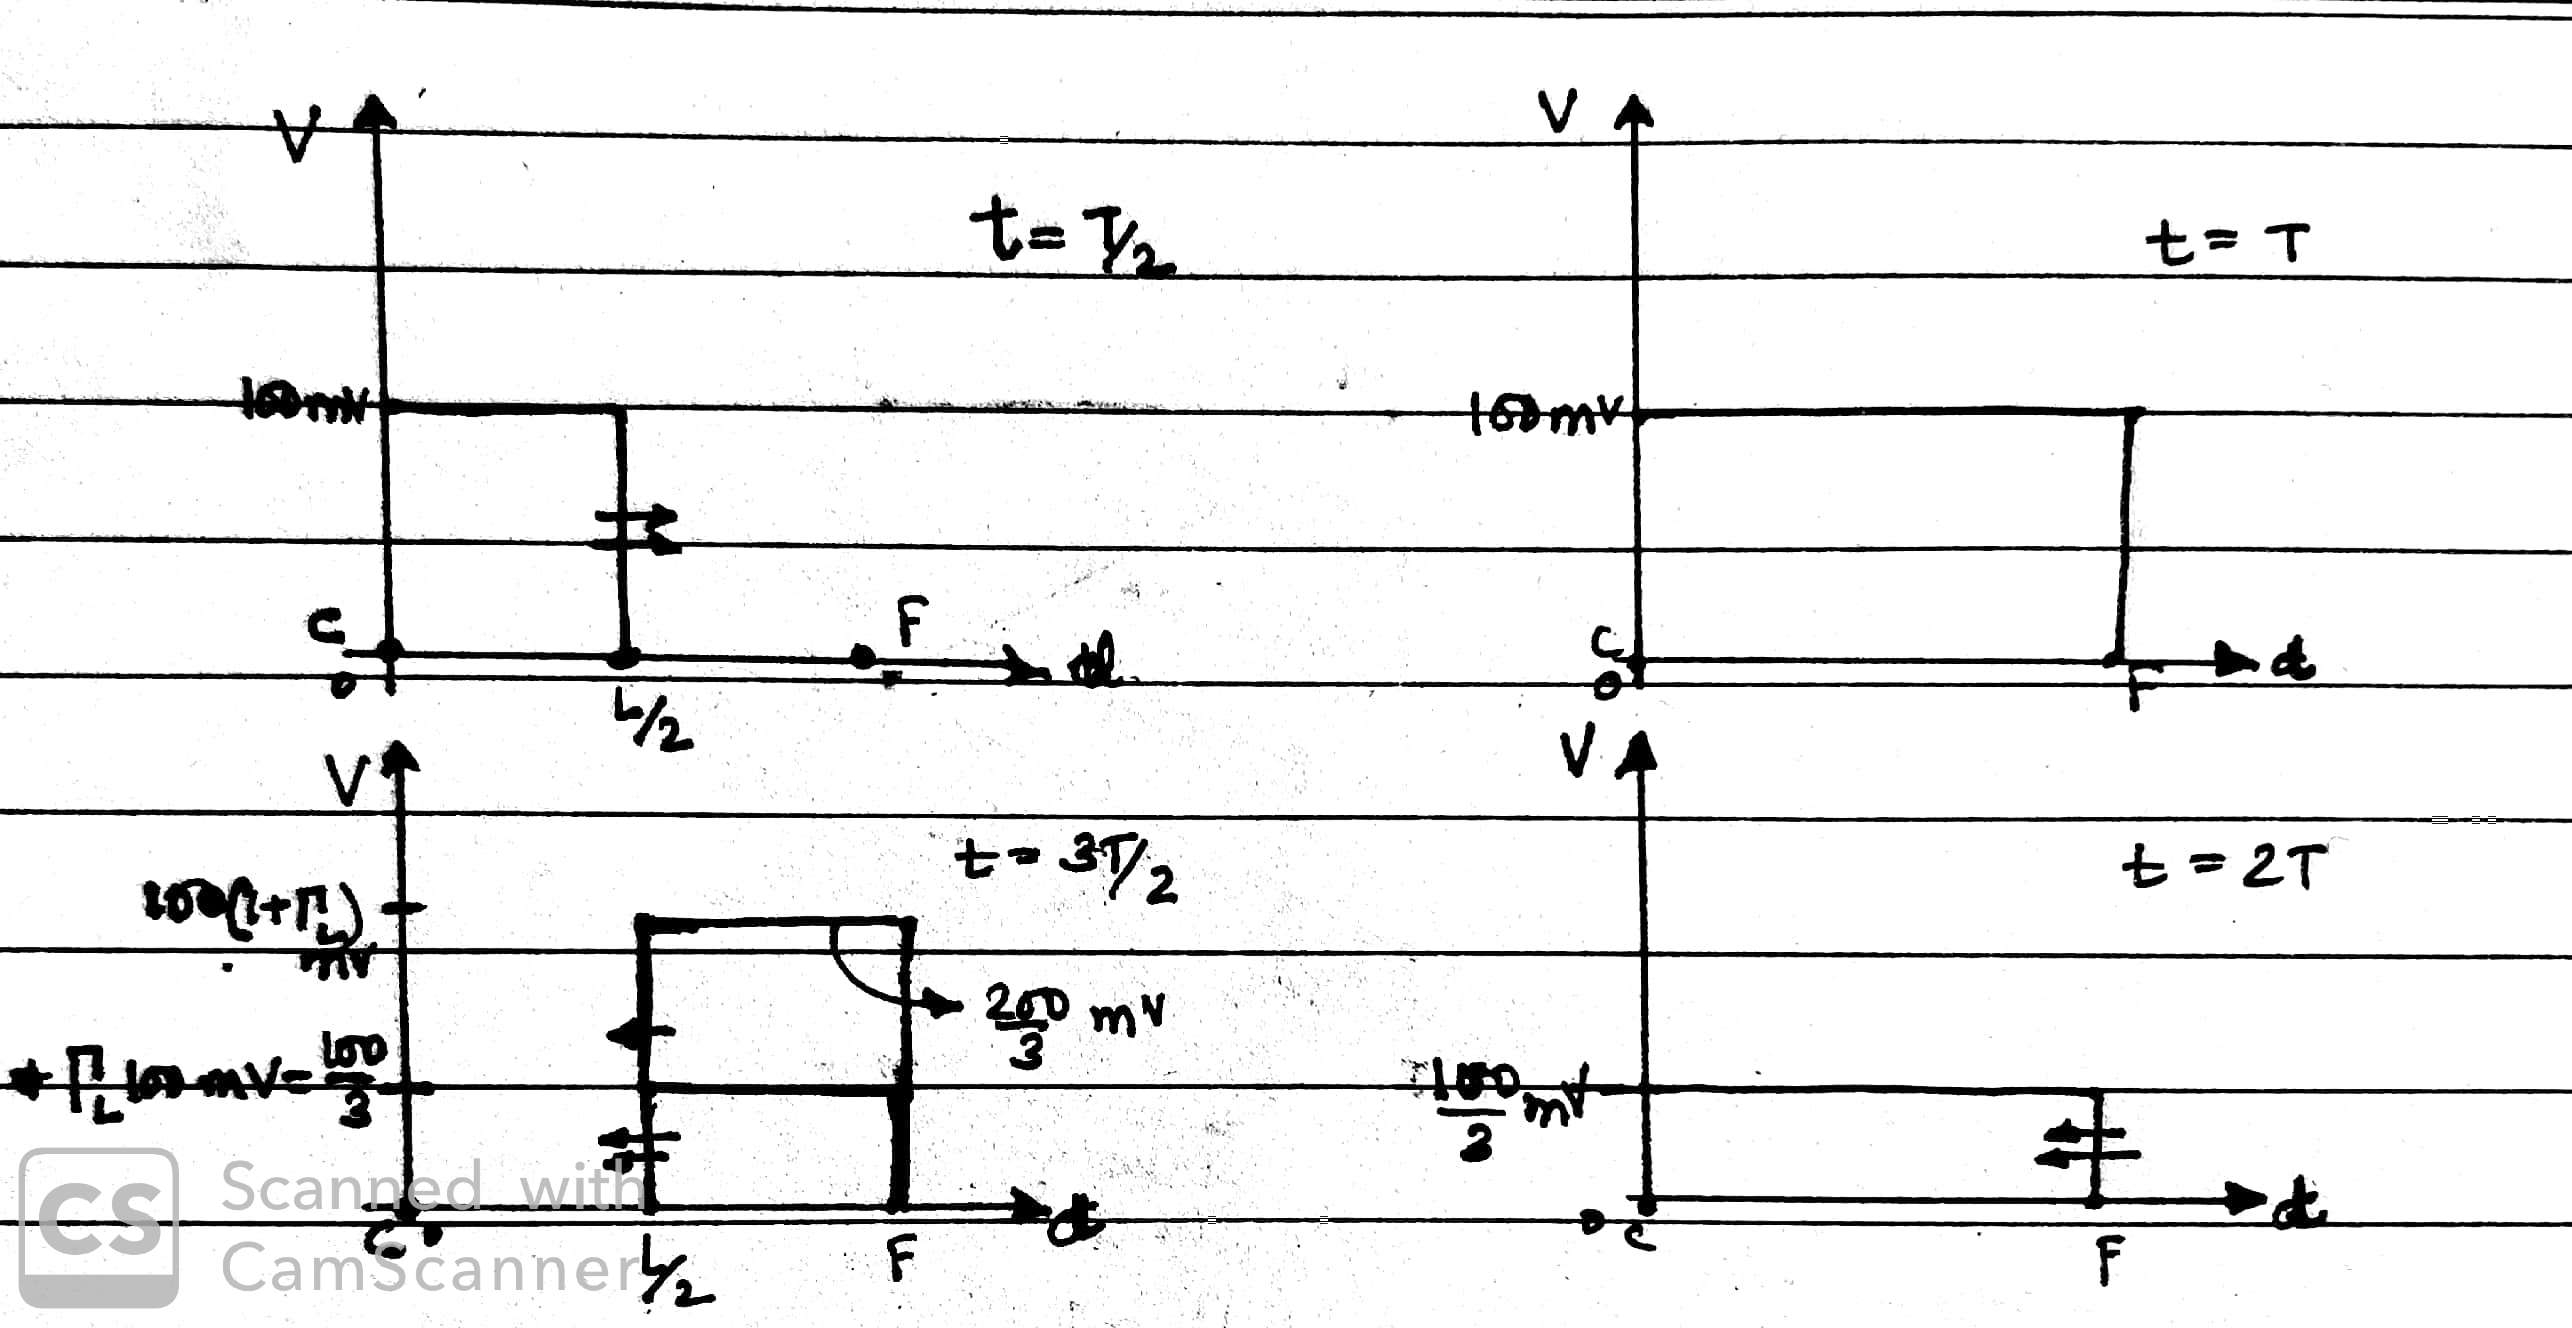 V
t = T/2
100mV
C
F
0
L/2
d
V
t = T
100mV
C
0
F
d
V
t = 3T/2
100(1+Γ_L)
mV
200/3 mV
Γ_L 100 mV = 100/3
C 0
L/2
F
d
V
t = 2T
100/3 mV
0 C
F
d
CS
Scanned with
CamScanner